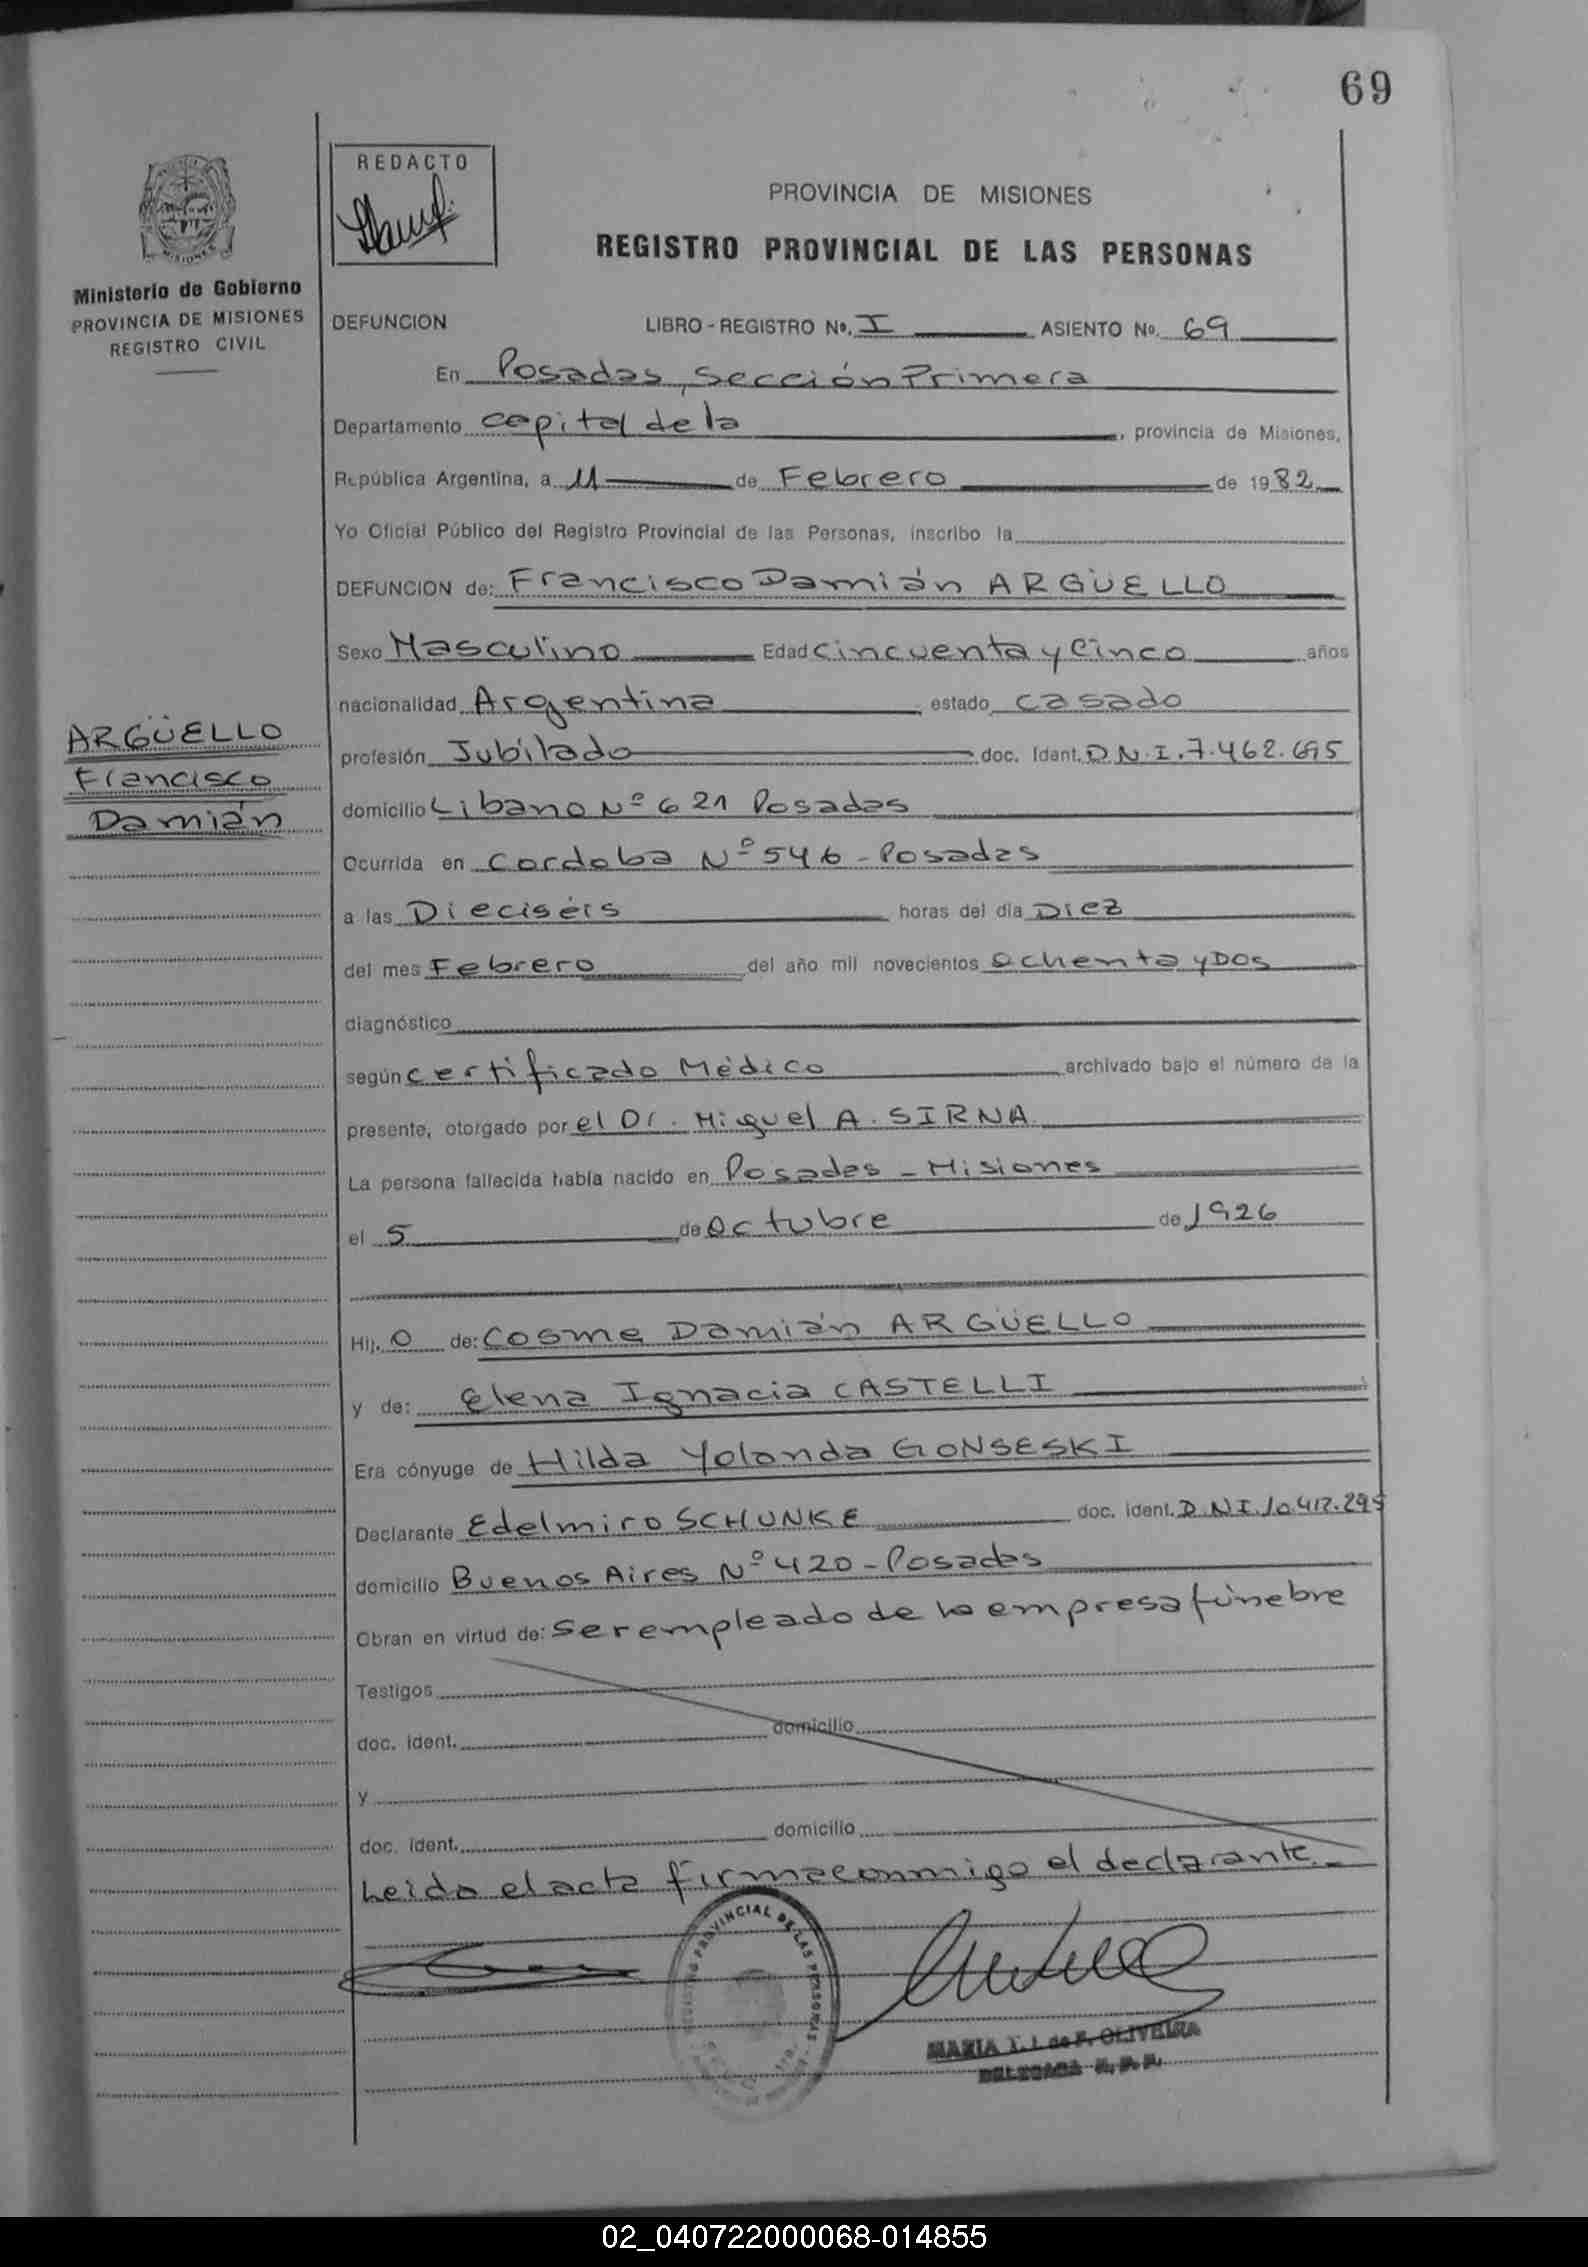 69
REDACTO
PROVINCIA DE MISIONES
REGISTRO PROVINCIAL DE LAS PERSONAS
MISIONES
Ministerio de Gobierno
PROVINCIA DE MISIONES
REGISTRO CIVIL
DEFUNCION LIBRO - REGISTRO Nº. I ASIENTO Nº. 69
En Posadas, Sección Primera
Departamento Capital de la, provincia de Misiones,
República Argentina, a 11 de Febrero de 1982
Yo Oficial Público del Registro Provincial de las Personas, inscribo la
DEFUNCION de: Francisco Damián ARGÜELLO
Sexo Masculino Edad Cincuenta y Cinco años
nacionalidad Argentina estado Casado
ARGÜELLO
Francisco
Damián
profesión Jubilado doc. Ident. D.N.I. 7.462.695
domicilio Libano Nº 621 Posadas
Ocurrida en Cordoba Nº 546 - Posadas
a las Dieciséis horas del día Diez
del mes Febrero del año mil novecientos Ochenta y Dos
diagnóstico
según Certificado Médico archivado bajo el número de la
presente, otorgado por el Dr. Miguel A. SIRNA
La persona fallecida había nacido en Posadas - Misiones
el 5 de Octubre de 1926
Hij. o de: Cosme Damián ARGÜELLO
y de: Elena Ignacia CASTELLI
Era cónyuge de Hilda Yolanda GONSESKI
Declarante Edelmiro SCHUNKE doc. ident. D.N.I. 10.417.295
domicilio Buenos Aires Nº 420 - Posadas
Obran en virtud de: Ser empleado de la empresa fúnebre
Testigos
doc. ident. domicilio
y
doc. ident. domicilio
Leida el acta firma conmigo el declarante.-
REGISTRO PROVINCIAL DE LAS PERSONAS
MARIA T. I. de F. OLIVEIRA
DELEGADA R. P. P.
02_040722000068-014855